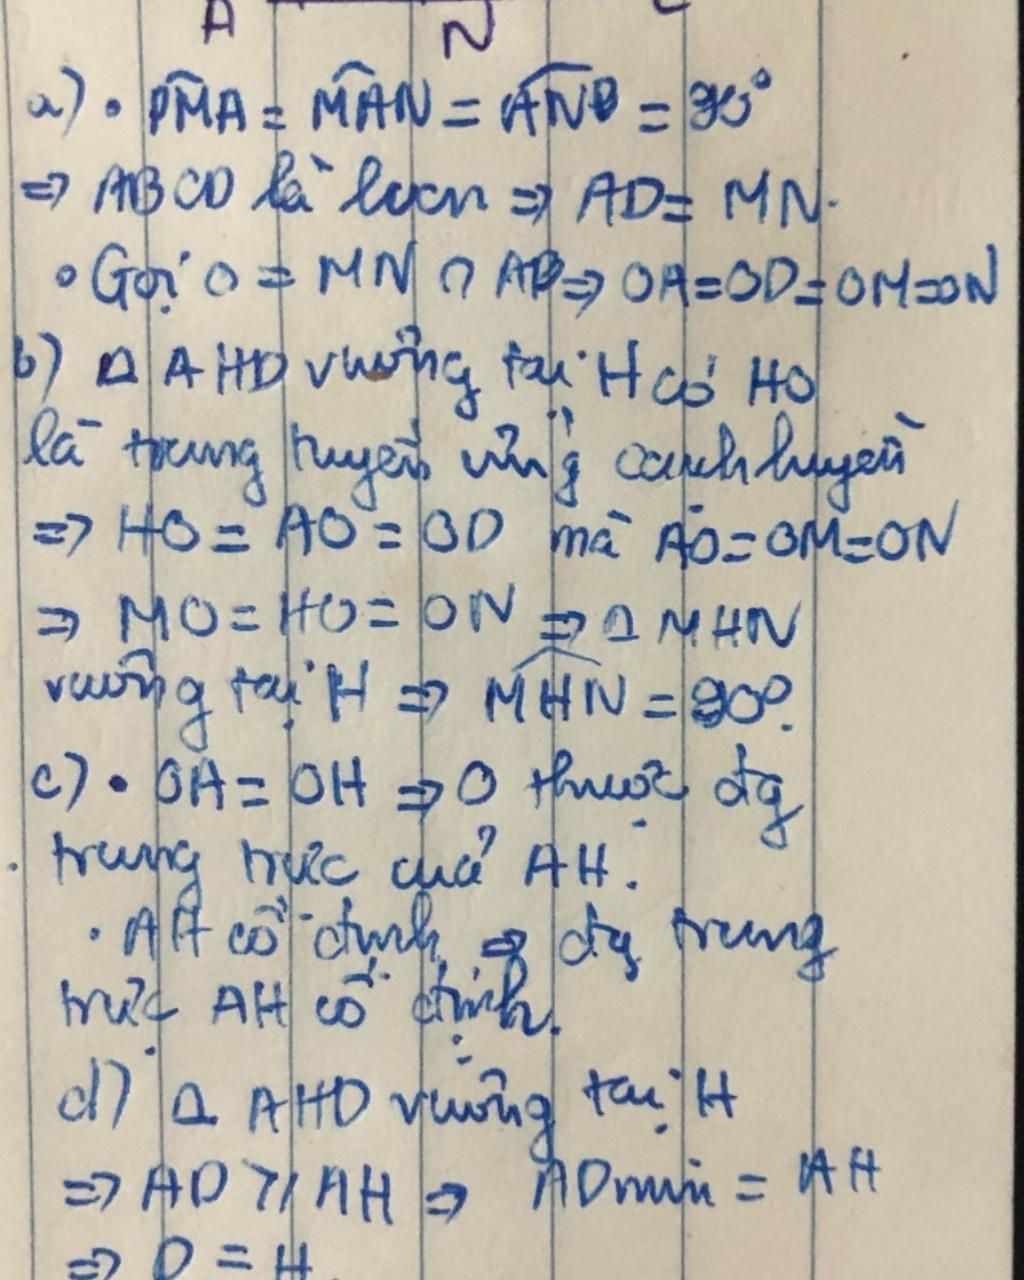 A N
a) • DMA = MAN = AND = 90°
⇒ ABCD là hcn ⇒ AD = MN.
• Gọi O = MN ∩ AD ⇒ OA=OD=OM=ON
b) Δ AHD vuông tại H có HO
là trung tuyến ứng cạnh huyền
⇒ HO = AO = OD mà AO=OM=ON
⇒ MO = HO = ON ⇒ Δ MHN
vuông tại H ⇒ MHN = 90°.
c) • OA = OH ⇒ O thuộc đg
trung trực của AH.
• AH cố định ⇒ đg trung
trực AH cố định.
d) Δ AHD vuông tại H
⇒ AD ≥ AH ⇒ ADmin = AH
⇒ D = H